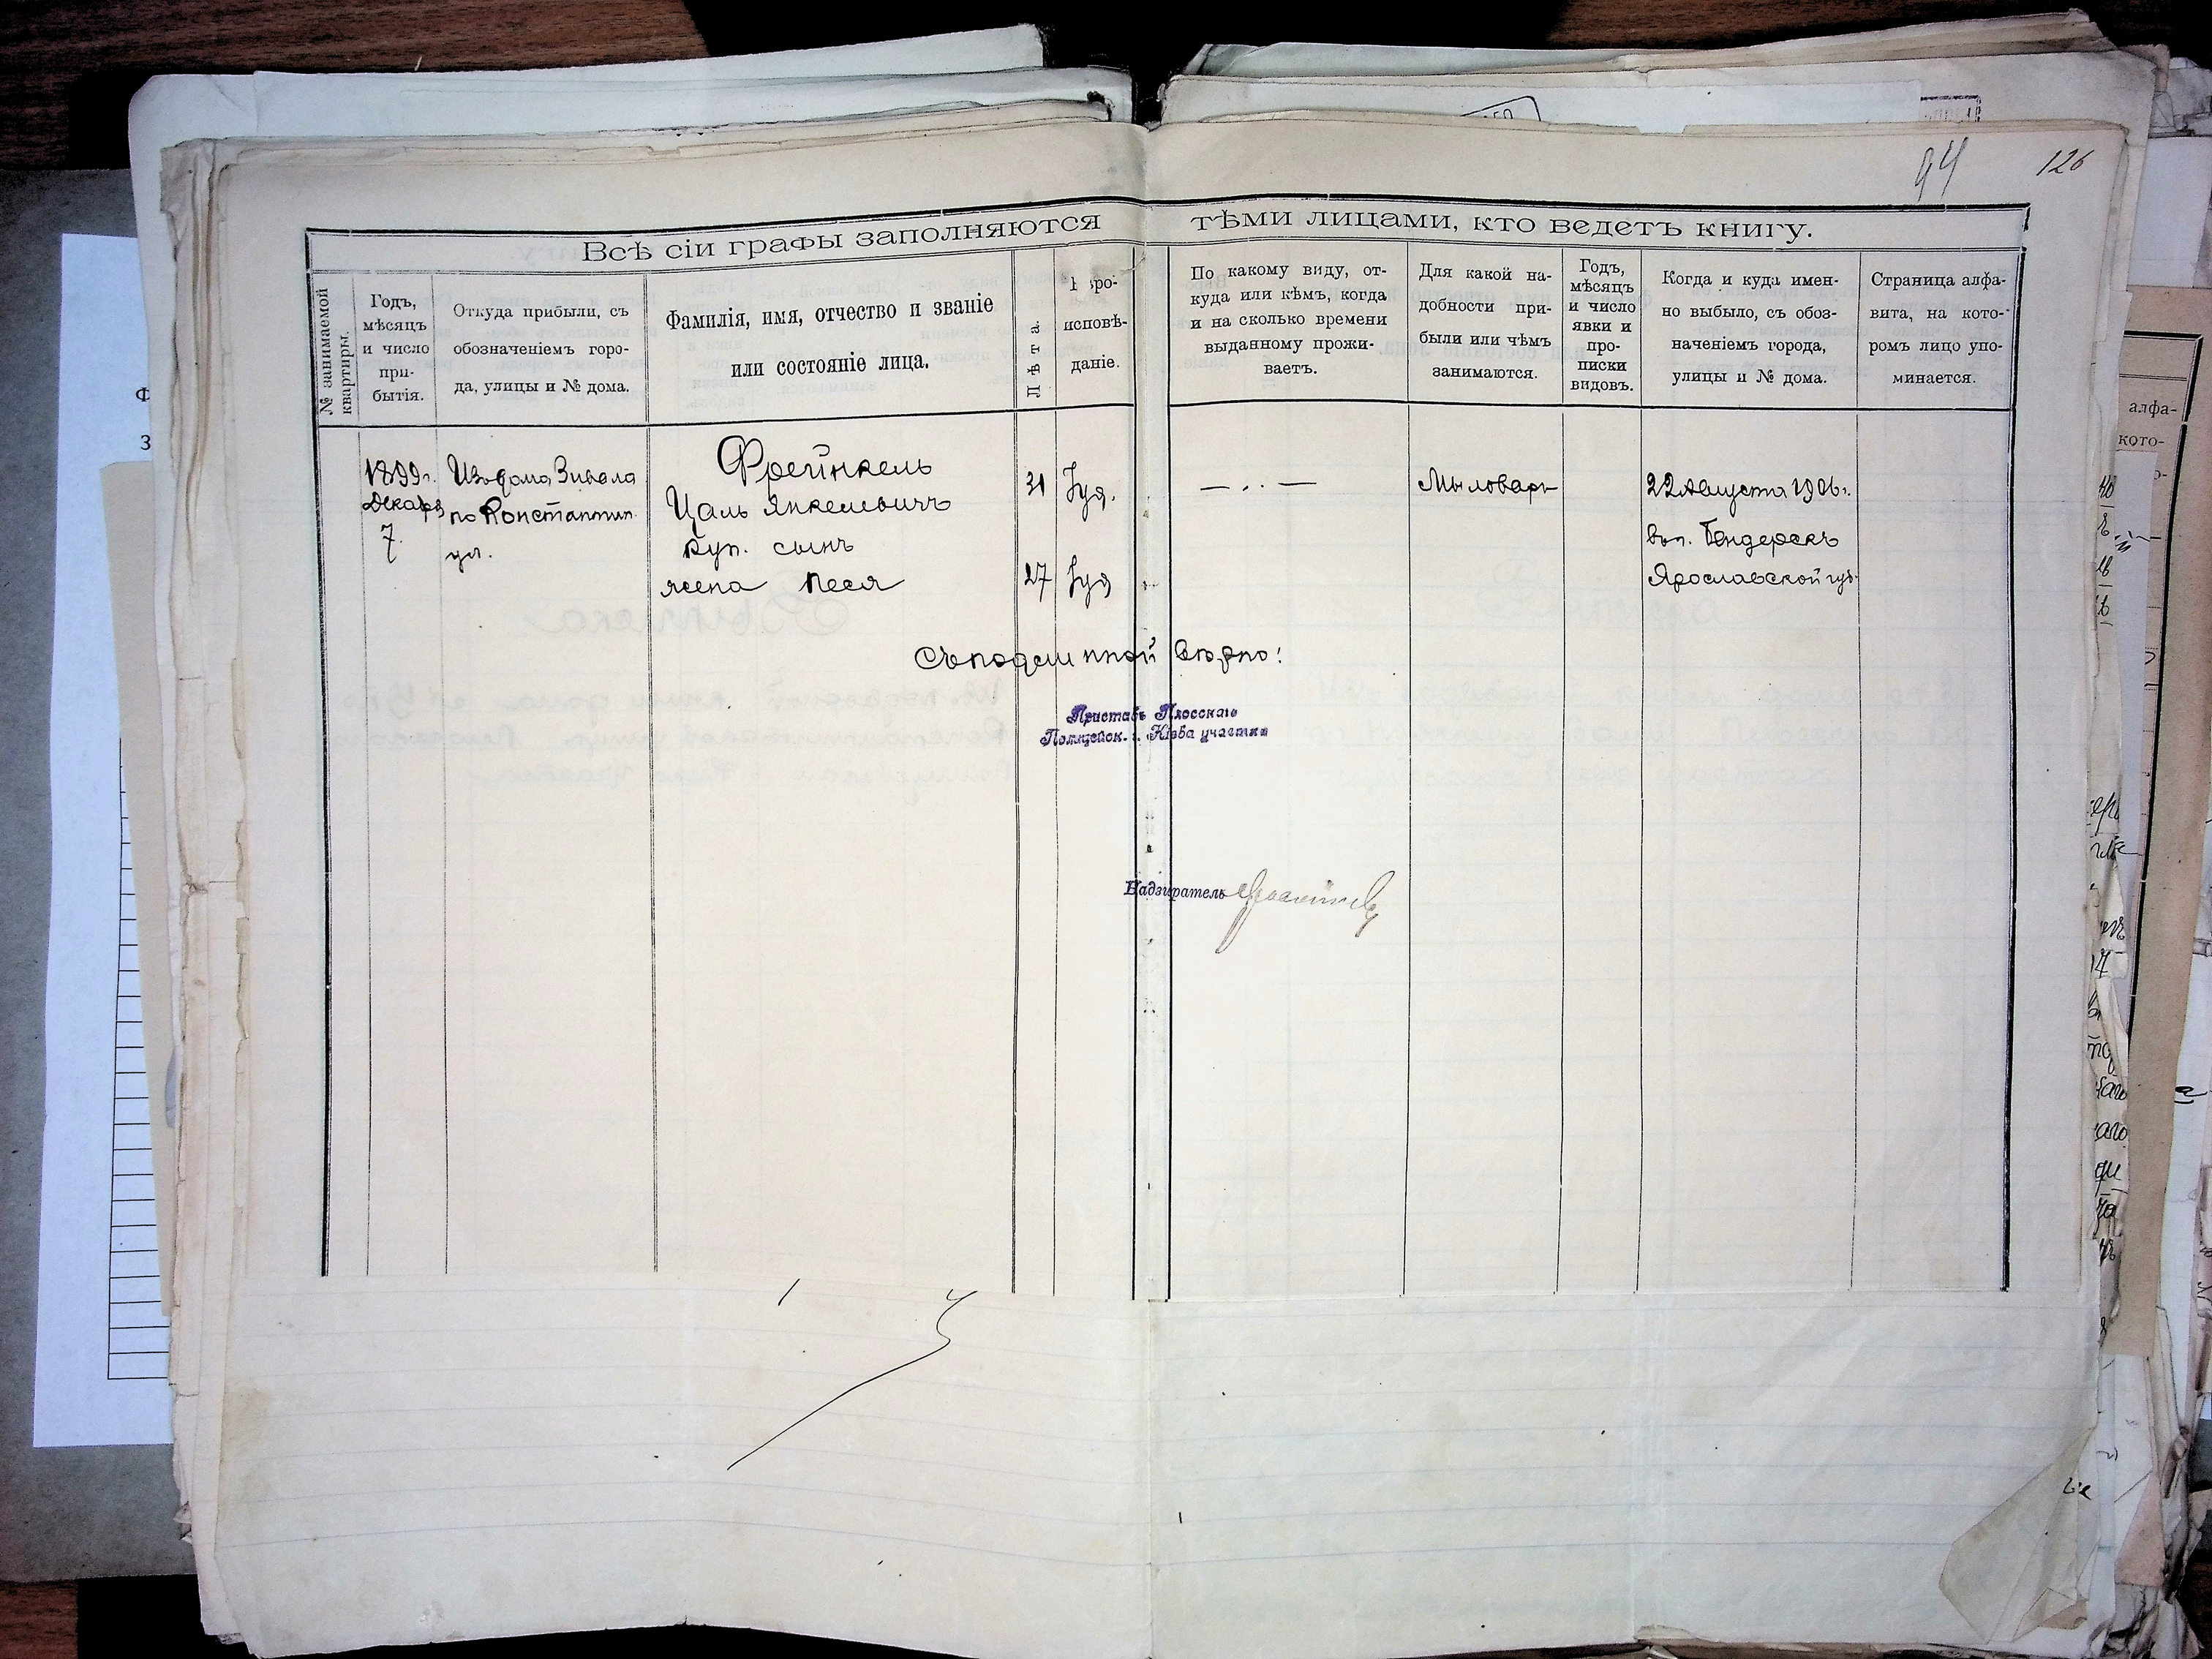 94
126
Всѣ сіи графы заполняются тѣми лицами, кто ведетъ книгу.
№ занимаемой
квартиры.
Годъ,
мѣсяцъ
и число
при-
бытія.
Откуда прибыли, съ
обозначеніемъ горо-
да, улицы и № дома.
Фамилія, имя, отчество и званіе
или состояніе лица.
Лѣта.
Вѣро-
исповѣ-
даніе.
По какому виду, от-
куда или кѣмъ, когда
и на сколько времени
выданному прожи-
ваетъ.
Для какой на-
добности при-
были или чѣмъ
занимаются.
Годъ,
мѣсяцъ
и число
явки и
про-
писки
видовъ.
Когда и куда имен-
но выбыло, съ обоз-
наченіемъ города,
улицы и № дома.
Страница алфа-
вита, на кото-
ромъ лицо упо-
минается.
1899 г.
Декабр
7.
Изъ дома Зивала
по Константин.
ул.
Фрейнкель
Цаль Янкелевичъ
куп. сынъ
жена Песя
31
27
Іуд.
Іуд
— .. —
Мыловаръ
22 Августа 1906 г.
Ярославской губ.
Съ подлинной вѣрно:
Приставъ Плосскаго
Полицейск. г. Кіева участка
Надзиратель
алфа-
кото-